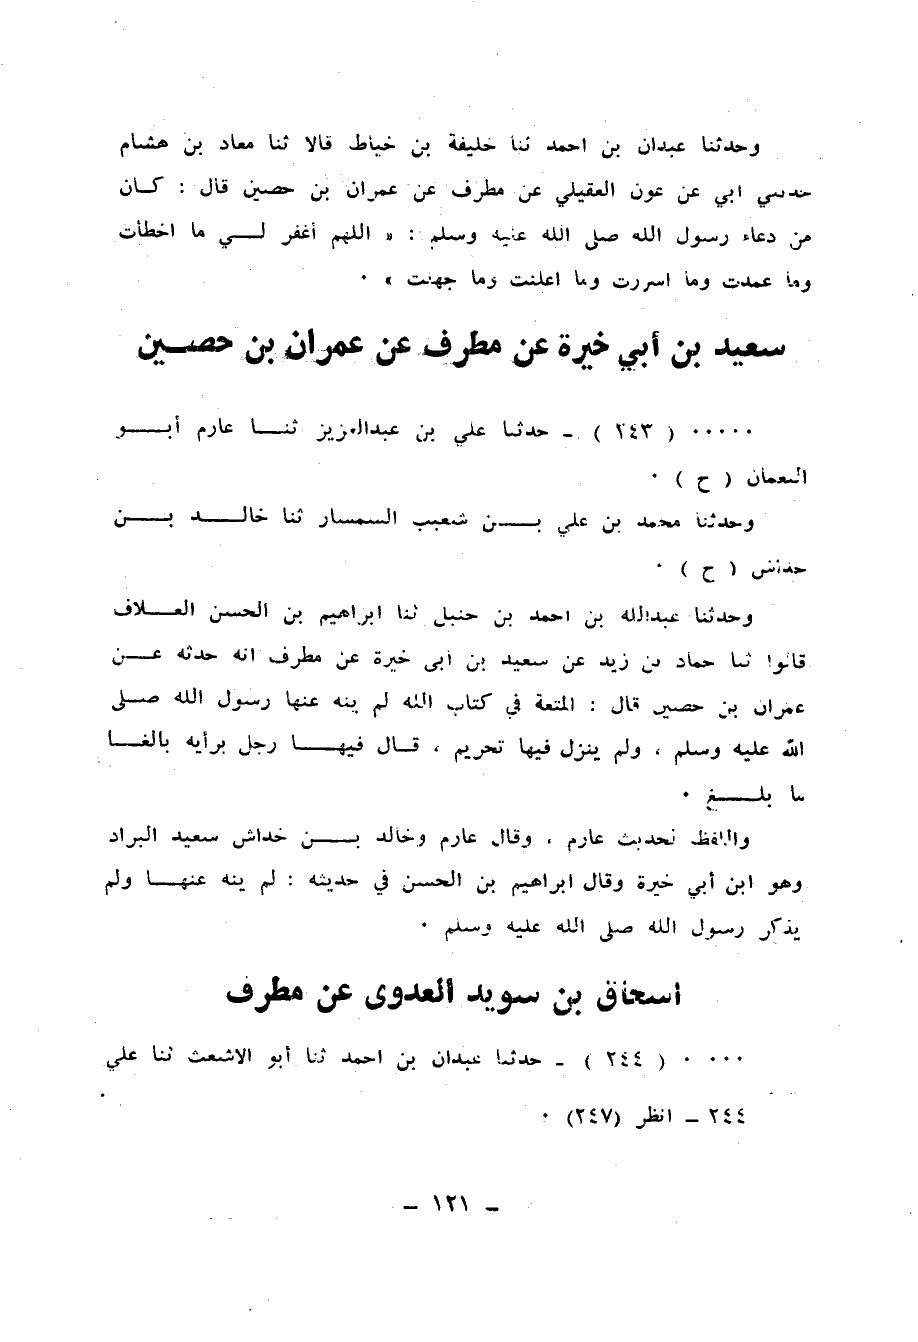 وحدثنا عبدان بن احمد ثنا خليفة بن خياط قالا ثنا معاذ بن هشام
حدثني ابي عن عون العقيلي عن مطرف عن عمران بن حصين قال : كــان
من دعاء رسول الله صلى الله عليه وسلم : « اللهم أغفر لــي ما اخطأت
وما عمدت وما اسررت وما اعلنت وما جهلت » ٠
سعيد بن أبي خيرة عن مطرف عن عمران بن حصــين
٠٠٠٠٠ ( ٢٤٣ ) ـ حدثنا علي بن عبدالعزيز ثنــا عارم أبــو
النعمان ( ح ) ٠
وحدثنا محمد بن علي بــن شعيب السمسار ثنا خالــد بــن
خداش ( ح ) ٠
وحدثنا عبدالله بن احمد بن حنبل ثنا ابراهيم بن الحسن العــلاف
قالوا ثنا حماد بن زيد عن سعيد بن أبى خيرة عن مطرف انه حدثه عــن
عمران بن حصين قال : المتعة في كتاب الله لم ينه عنها رسول الله صــلى
الله عليه وسلم ، ولم ينزل فيها تحريم ، قــال فيهــا رجل برأيه بالغــا
ما بلــغ ٠
واللفظ لحديث عارم ، وقال عارم وخالد بــن خداش سعيد البراد
وهو ابن أبي خيرة وقال ابراهيم بن الحسن في حديثه : لم ينه عنهــا ولم
يذكر رسول الله صلى الله عليه وسلم ٠
اسحاق بن سويد العدوى عن مطرف
٠٠٠ ٠ ( ٢٤٤ ) ـ حدثنا عبدان بن احمد ثنا أبو الاشعث ثنا علي
٢٤٤ ـ انظر (٢٤٧) ٠
ـ ١٢١ ـ